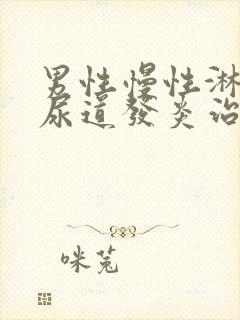 男性慢性淋
尿道發炎治
咪兔